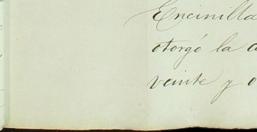 Encinilla
otorgó la
veinte y